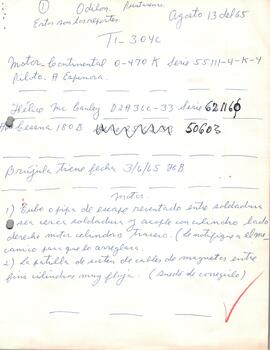 1
Odilon
Agosto 13 del 65
Estos son los reportes
TI-304C
Motor Continental O-470 K serie 55111-4-K-4
Piloto. A Espinoza.
Hélice Mc Cauley D2A36C-33 serie 621160
Cessna 180B 50603
Brújula tiene fecha 3/6/65
Motor
1) Tubo o pipa de escape reventado entre soldadura
o sea cerca soldadura y acople con cilindro lado
derecho motor cilindro trasero. (Se notifique a el me-
canico para que lo arreglara.
2) La patilla de sosten de cables de magnetos entre
cilindros muy floja. (Quedo de corregirlo)